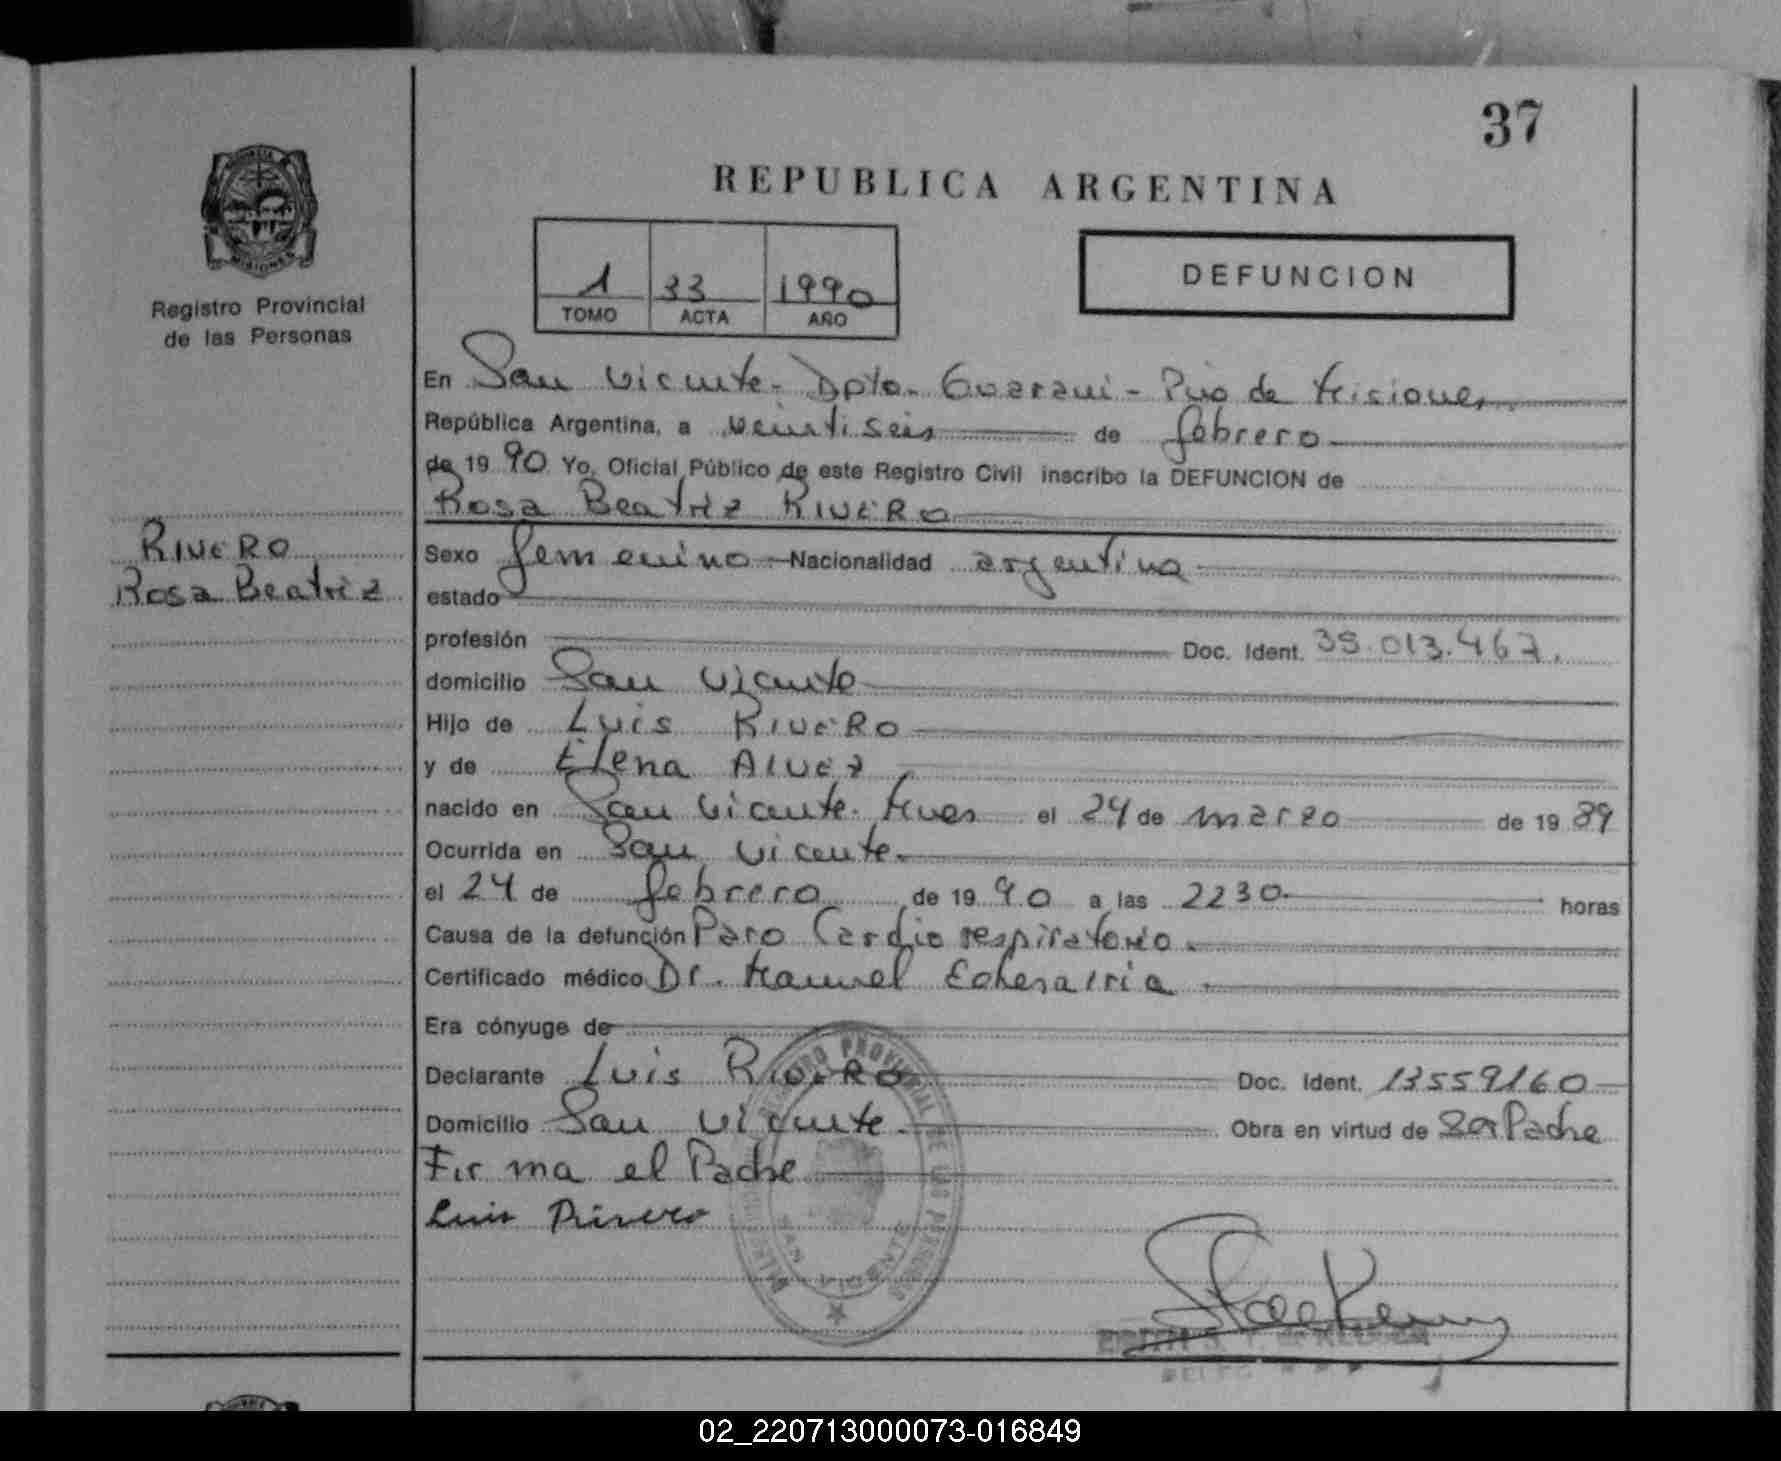 37
REPUBLICA ARGENTINA
PROVINCIA DE
MISIONES
Registro Provincial
de las Personas
1 33 1990
TOMO ACTA AÑO
DEFUNCION
En San Vicente - Dpto. Guaraní - Pcia de Misiones
República Argentina, a veintiseis de febrero
de 19 90 Yo, Oficial Público de este Registro Civil inscribo la DEFUNCION de
Rosa Beatriz RIVERO
RIVERO
Rosa Beatriz
Sexo femenino Nacionalidad argentina
estado
profesión Doc. Ident. 35.013.467.
domicilio San Vicente
Hijo de Luis RIVERO
y de Elena Alvez
nacido en San Vicente. Mnes el 24 de marzo de 19 89
Ocurrida en San Vicente.
el 24 de febrero de 19 90 a las 2230 horas
Causa de la defunción Paro Cardio respiratorio.
Certificado médico Dr. Manuel
Era cónyuge de
Declarante Luis RIVERO Doc. Ident. 13559160
Domicilio San Vicente. Obra en virtud de Ser Padre
Firma el Padre
Luis Rivero
REGISTRO PROVINCIAL DE LAS PERSONAS
SAN VICENTE
02_220713000073-016849